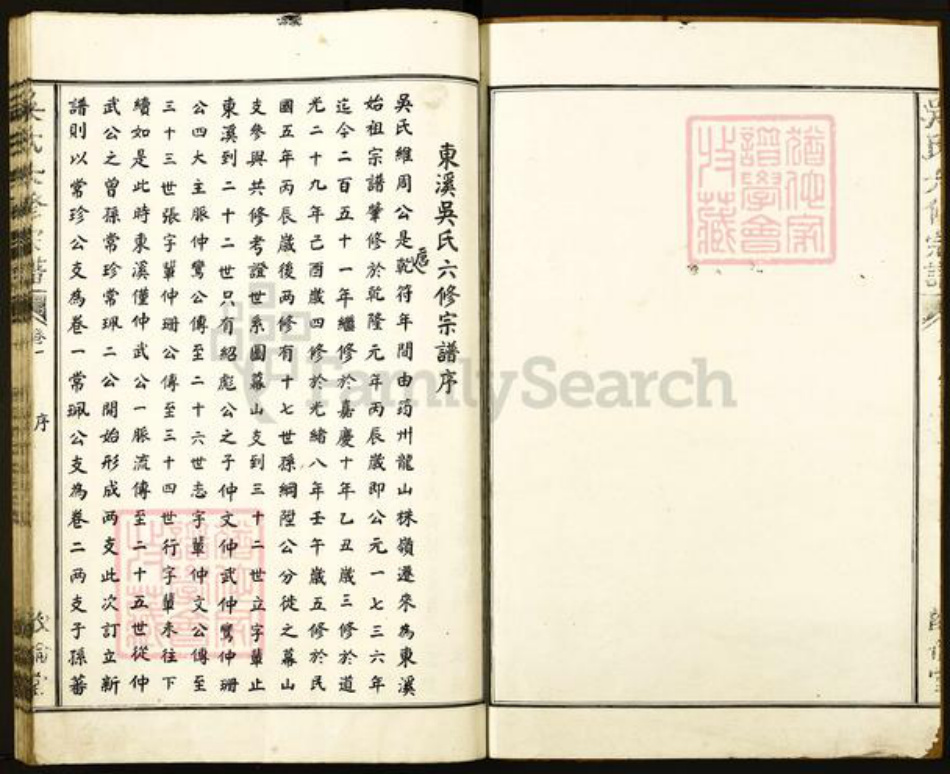 東溪吳氏六修宗譜序
吳氏維周公是乾符年間由筠州龍山株嶺遷來為東溪
始祖宗譜肇修於乾隆元年丙辰歲即公元一七三六年
迄今二百五十一年繼修於嘉慶十年乙丑歲三修於道
光二十九年己酉歲四修於光緒八年壬午歲五修於民
國五年丙辰歲後兩修有十七世孫綱陞公分徙之幕山
支參與共修考證世系圖幕山支到三十二世立字輩止
東溪到二十二世只有紹彪公之子仲文仲武仲鸞仲珊
公四大主脈仲鸞公傳至二十六世志字輩仲文公傳至
三十三世張字輩仲珊公傳至三十四世行字輩未往下
續如是此時東溪僅仲武公一脈流傳至二十五世從仲
武公之曾孫常珍常珮二公開始形成兩支此次訂立新
譜則以常珍公支為卷一常珮公支為卷二兩支子孫蕃
吳氏六修宗譜
卷一
序
吳氏六修宗譜
FamilySearch
譜學會
收藏